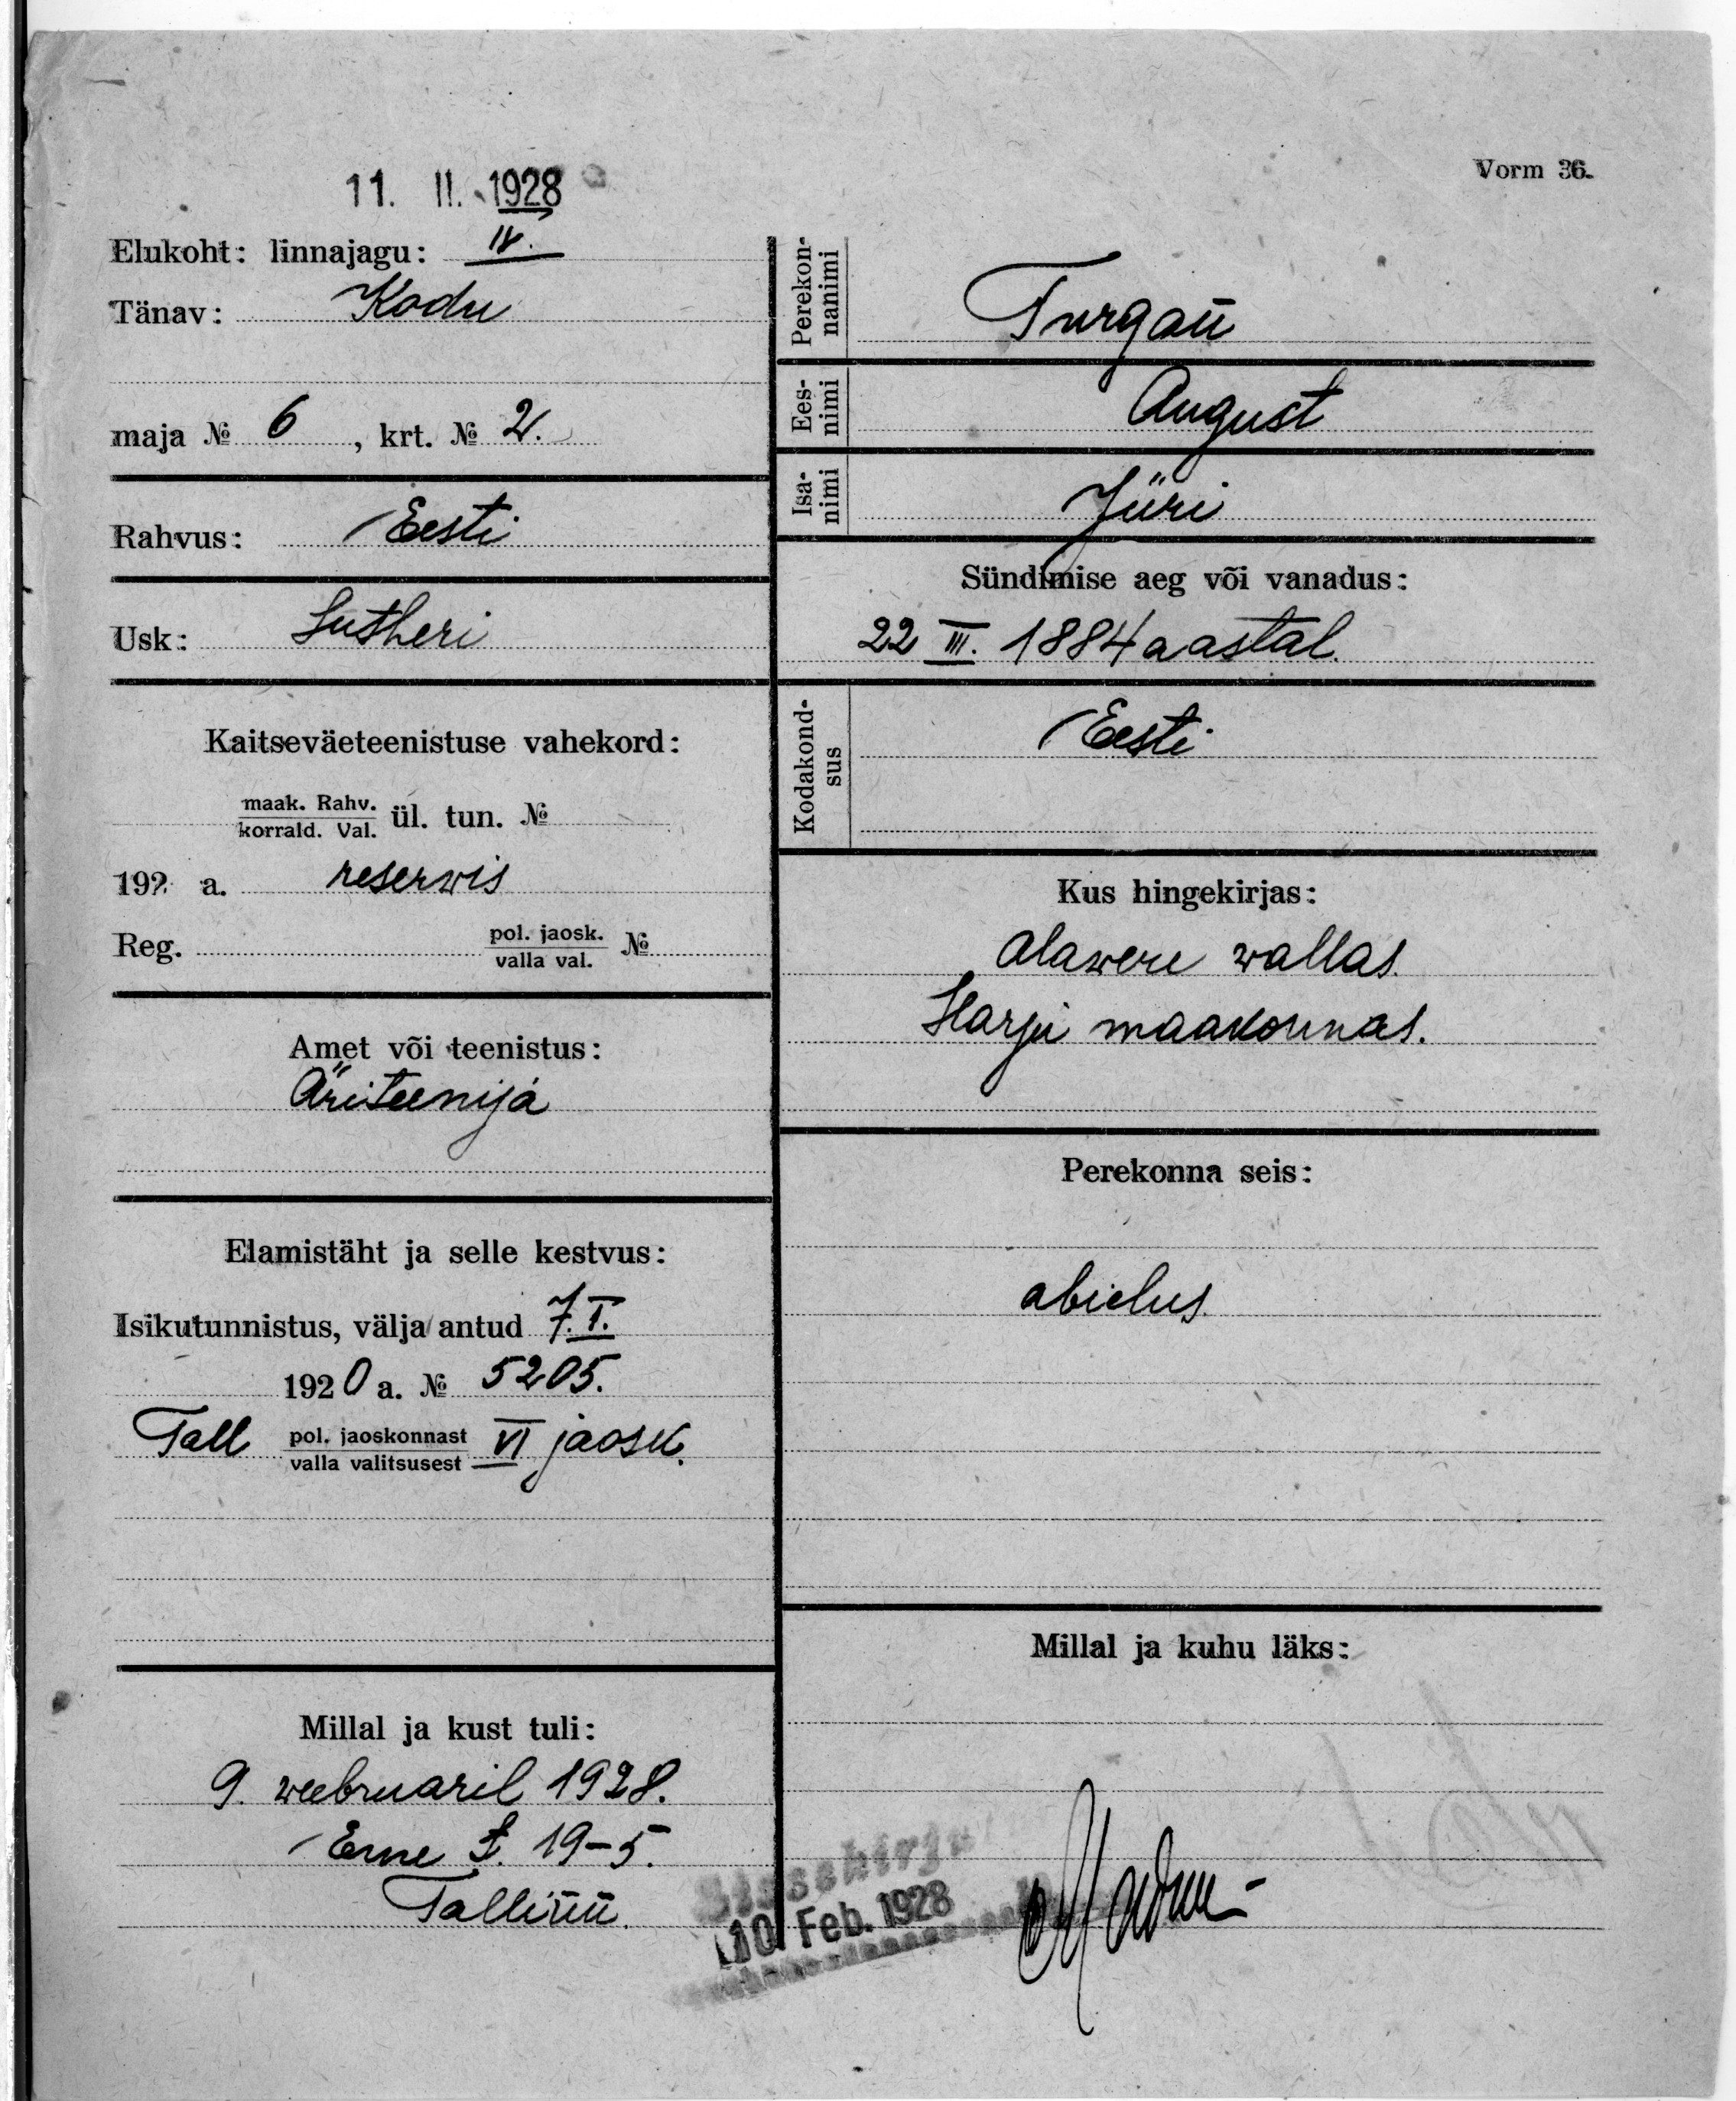 Vorm 36.
11. II. 1928
Elukoht: linnajagu: IV.
Tänav: Kodu
maja № 6, krt. № 2.
Rahvus: Eesti
Usk: Lutheri
Kaitseväeteenistuse vahekord:
maak. Rahv.
korrald. Val. ül. tun. №
192 a. reserwis
Reg. pol. jaosk.
valla val. №
Amet või teenistus:
Äriteenija
Elamistäht ja selle kestvus:
Isikutunnistus, välja antud 7. I.
1920 a. № 5205.
Tall pol. jaoskonnast
valla valitsusest VI jaosk.
Millal ja kust tuli:
9. weebruaril 1928.
Erne t. 19-5.
Tallinn.
Perekon-
nanimi
Turgan
Ees-
nimi
August
Isa-
nimi
Jüri
Sündimise aeg või vanadus:
22 III. 1884 aastal.
Kodakond-
sus
Eesti
Kus hingekirjas:
Alawere wallas
Harju maakonnas.
Perekonna seis:
abielus.
Millal ja kuhu läks:
Sissekirju
10 Feb. 1928